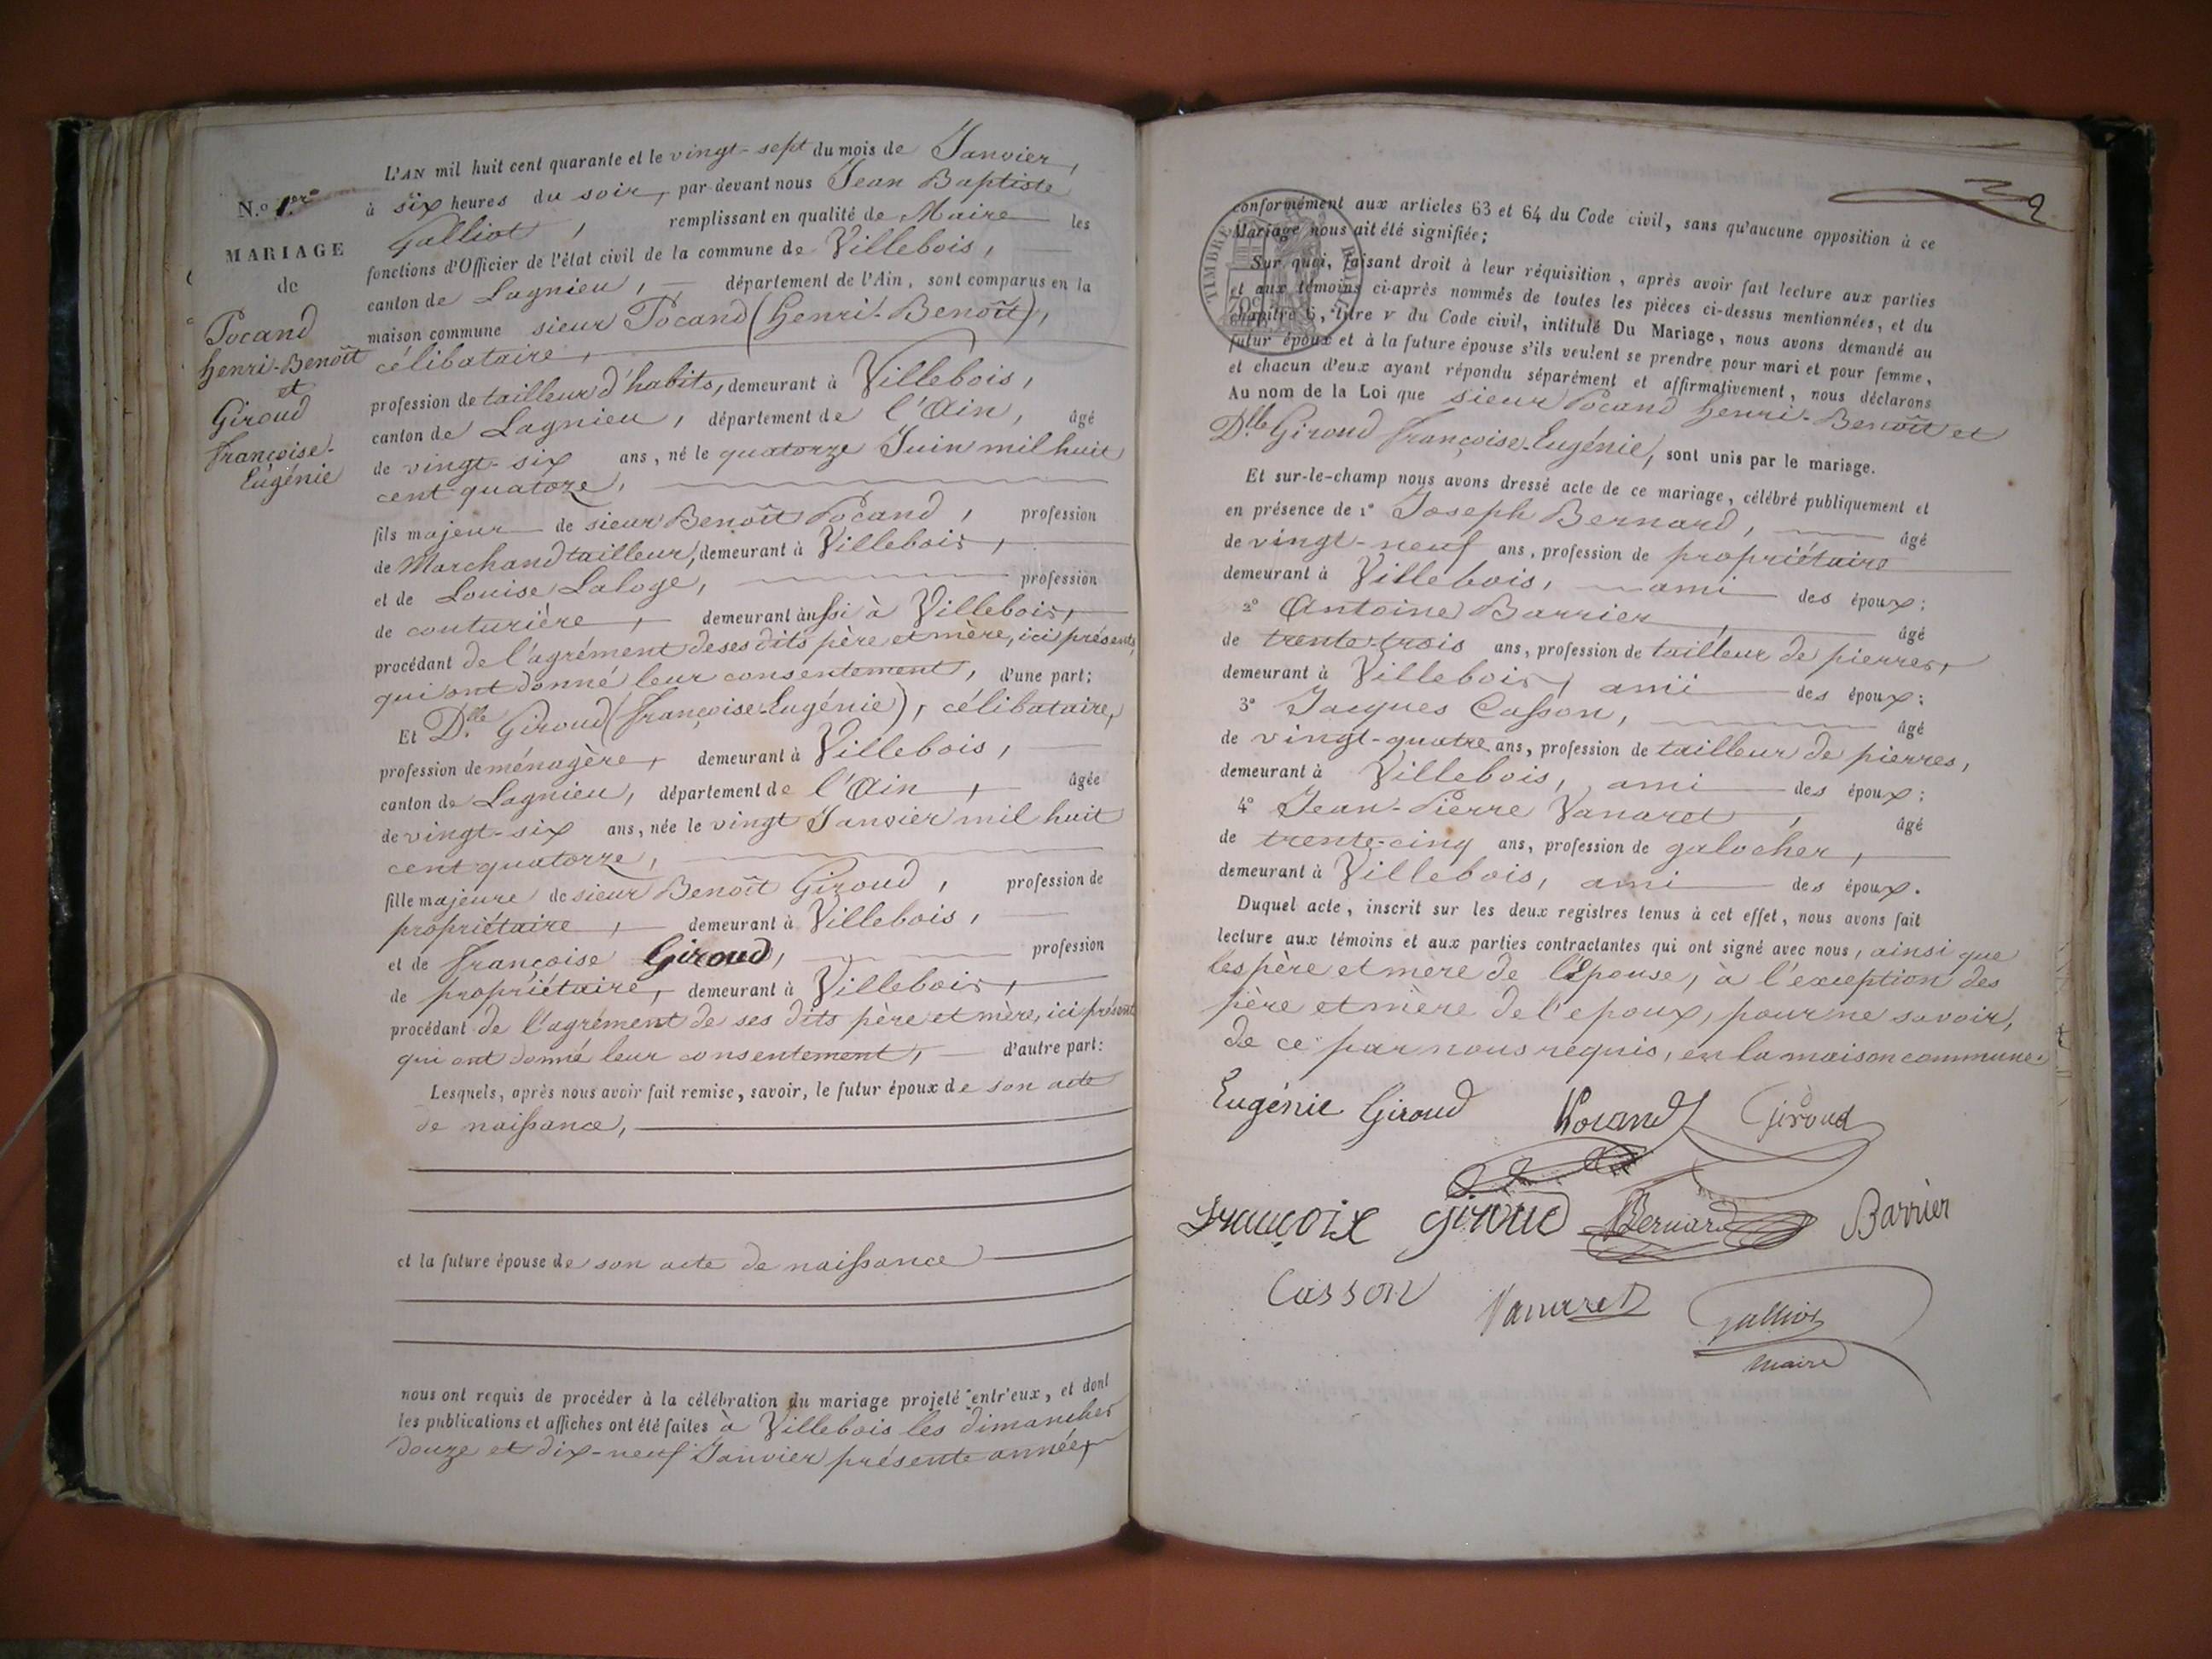 N.o 1.er
MARIAGE
de
Pocand
henri-Benoît
et
Giroud
françoise-
Eugénie
L'AN mil huit cent quarante et le vingt-sept du mois de Janvier,
à six heures du soir, par-devant nous Jean Baptiste
Galliot, remplissant en qualité de Maire les
fonctions d'Officier de l'état civil de la commune de Villebois,
canton de Lagnieu, département de l'Ain, sont comparus en la
maison commune sieur Pocand (henri-Benoît),
célibataire,
profession de tailleur d'habits, demeurant à Villebois,
canton de Lagnieu, département de l'Ain, âgé
de vingt-six ans, né le quatorze Juin mil huit
cent quatorze,
fils majeur de sieur Benoît Pocand, profession
de Marchand tailleur, demeurant à Villebois,
et de Louise Laloge, profession
de couturière, demeurant aussi à Villebois,
procédant de l'agrément de ses dits père et mère, ici présents
qui ont donné leur consentement, d'une part;
Et D.lle Giroud (françoise-Eugénie), célibataire,
profession de ménagère, demeurant à Villebois,
canton de Lagnieu, département de l'Ain, âgée
de vingt-six ans, née le vingt Janvier mil huit
cent quatorze,
fille majeure de sieur Benoît Giroud, profession de
propriétaire, demeurant à Villebois,
et de françoise Giroud, profession
de propriétaire, demeurant à Villebois,
procédant de l'agrément de ses dits père et mère, ici présents
qui ont donné leur consentement, d'autre part:
Lesquels, après nous avoir fait remise, savoir, le futur époux de son acte
de naissance,
et la future épouse de son acte de naissance
nous ont requis de procéder à la célébration du mariage projeté entr'eux, et dont
les publications et affiches ont été faites à Villebois les dimanches
douze et dix-neuf Janvier présente année,
2
TIMBRE ROYAL
70c
conformément aux articles 63 et 64 du Code civil, sans qu'aucune opposition à ce
Mariage nous ait été signifiée;
Sur quoi, faisant droit à leur réquisition, après avoir fait lecture aux parties
et aux témoins ci-après nommés de toutes les pièces ci-dessus mentionnées, et du
chapitre 6, titre v du Code civil, intitulé Du Mariage, nous avons demandé au
futur époux et à la future épouse s'ils veulent se prendre pour mari et pour femme,
et chacun d'eux ayant répondu séparément et affirmativement, nous déclarons
Au nom de la Loi que sieur Pocand henri-Benoît et
D.lle Giroud françoise-Eugénie, sont unis par le mariage.
Et sur-le-champ nous avons dressé acte de ce mariage, célébré publiquement et
en présence de 1° Joseph Bernard, âgé
de vingt-neuf ans, profession de propriétaire
demeurant à Villebois, ami des époux;
2° Antoine Barrier, âgé
de trente-trois ans, profession de tailleur de pierres,
demeurant à Villebois, ami des époux;
3° Jacques Casson, âgé
de vingt-quatre ans, profession de tailleur de pierres,
demeurant à Villebois, ami des époux;
4° Jean-Pierre Vanaret, âgé
de trente-cinq ans, profession de galocher,
demeurant à Villebois, ami des époux.
Duquel acte, inscrit sur les deux registres tenus à cet effet, nous avons fait
lecture aux témoins et aux parties contractantes qui ont signé avec nous, ainsi que
les père et mère de l'Epouse, à l'exception des
père et mère de l'epoux, pour ne savoir,
de ce par nous requis, en la maison commune.
Eugénie Giroud Pocand Giroud
françoise giroud Bernard Barrier
Casson Vanaret Galliot
maire